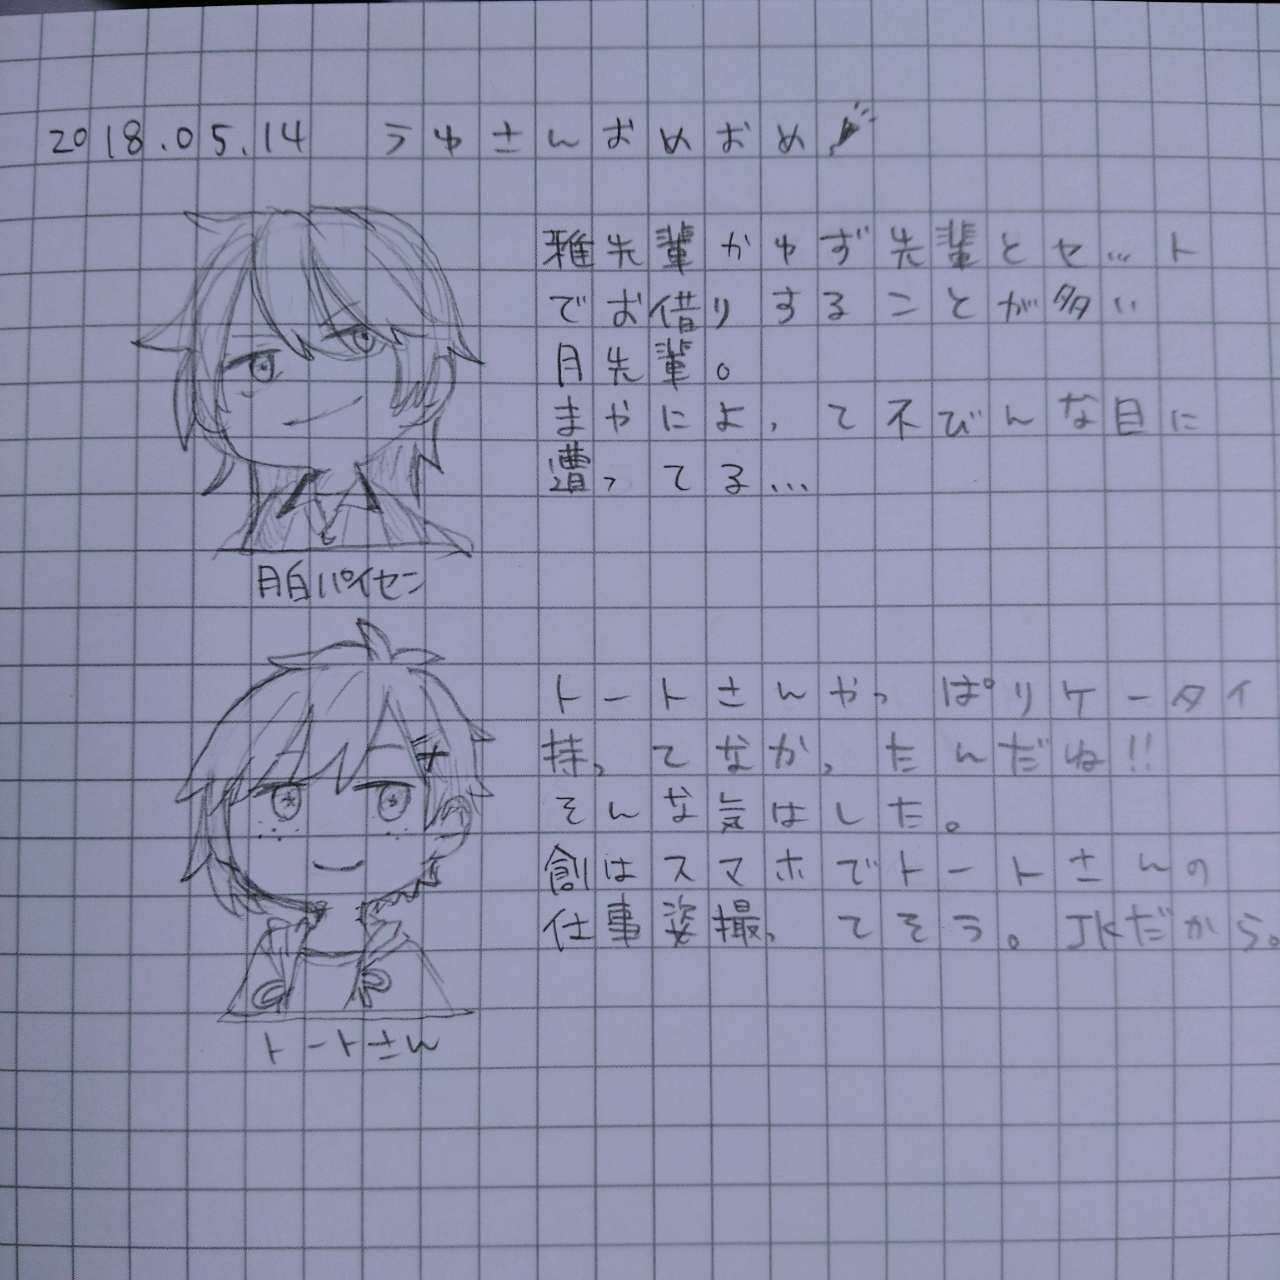 2018.05.14 うゆさんおめおめ🎉
雅先輩かゆず先輩とセット
でお借りすることが多い
月先輩。
まやによって不びんな目に
遭ってる…
月白パイセン
トートさんやっぱりケータイ
持ってなかったんだね!!
そんな気はした。
創はスマホでトートさんの
仕事姿撮ってそう。JKだから。
トートさん